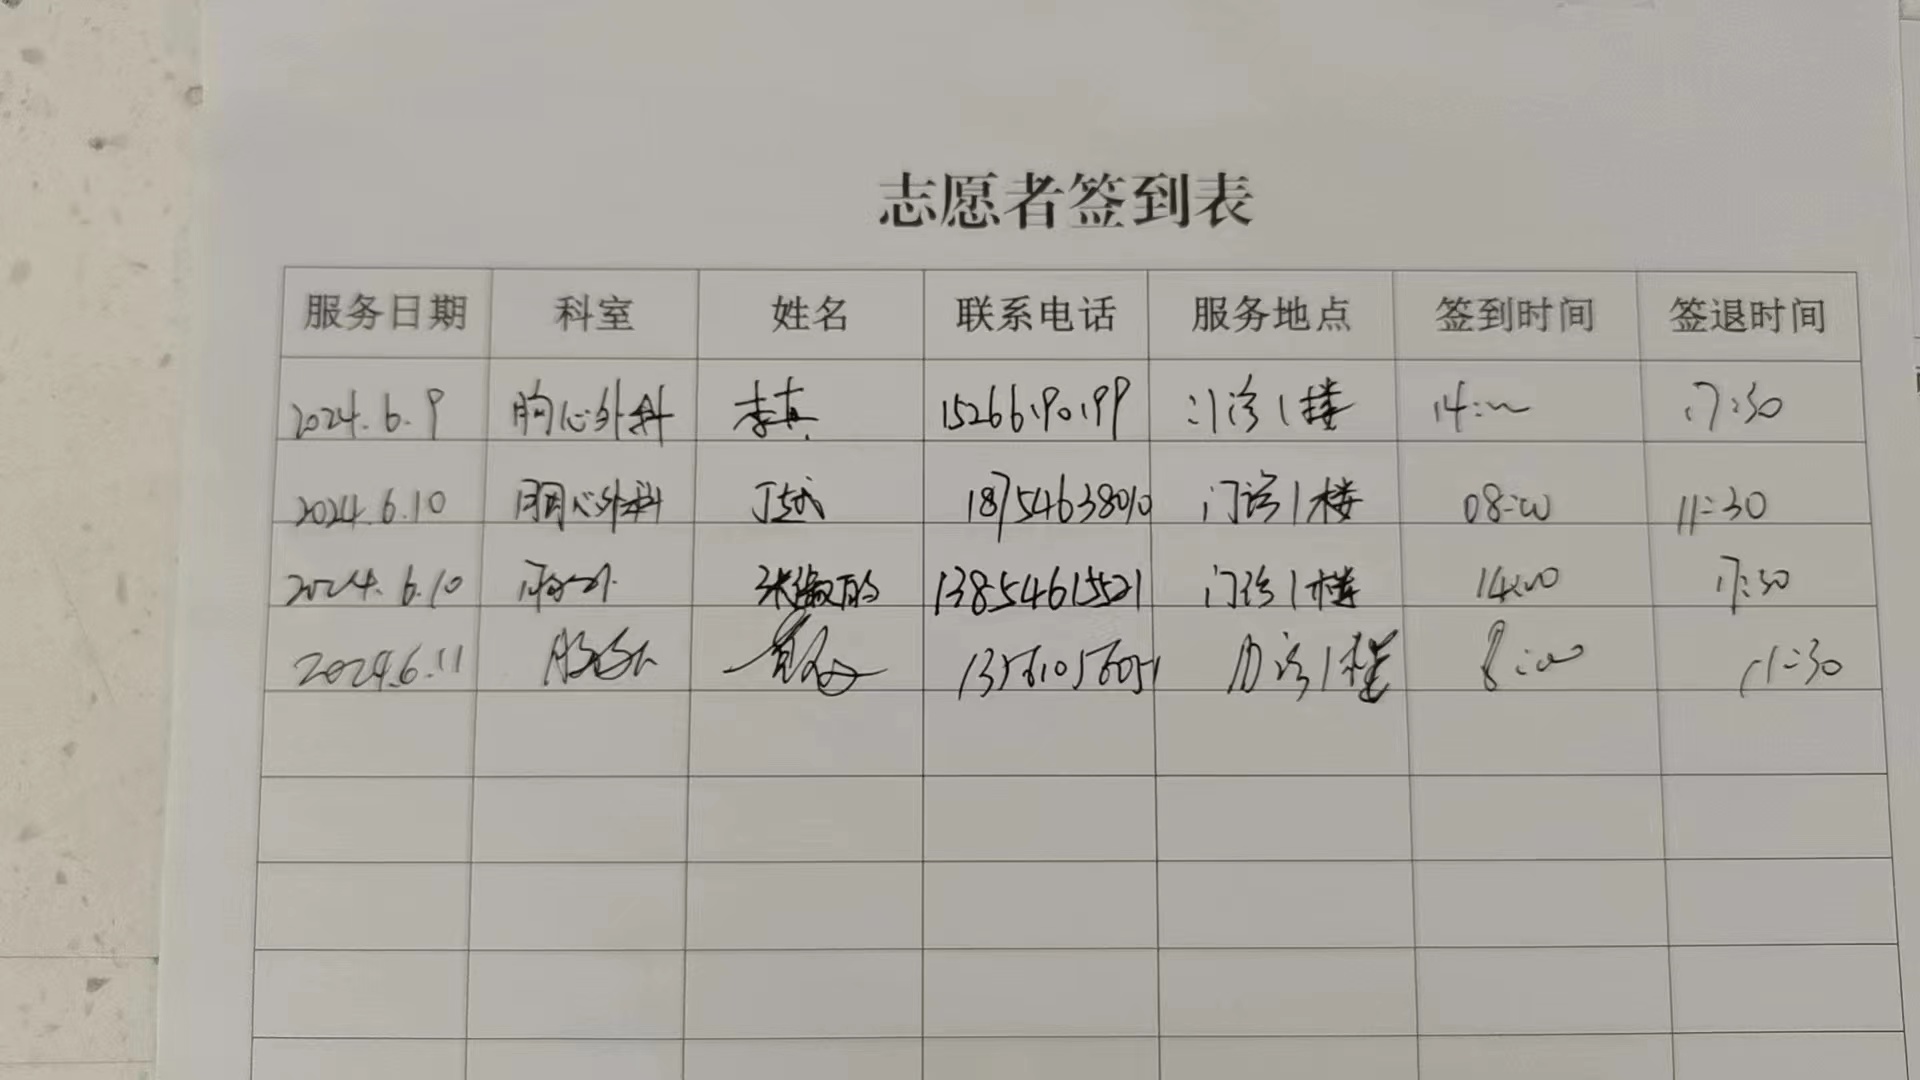 志愿者签到表
服务日期 科室 姓名 联系电话 服务地点 签到时间 签退时间
2024.6.9 胸心外科 李真 15266190199 门诊1楼 14:00 17:30
2024.6.10 胸心外科 丁斌 18754638010 门诊1楼 08:00 11:30
2024.6.10 13854615521 门诊1楼 14:00 17:30
2024.6.11 13561056051 门诊1楼 8:00 11:30